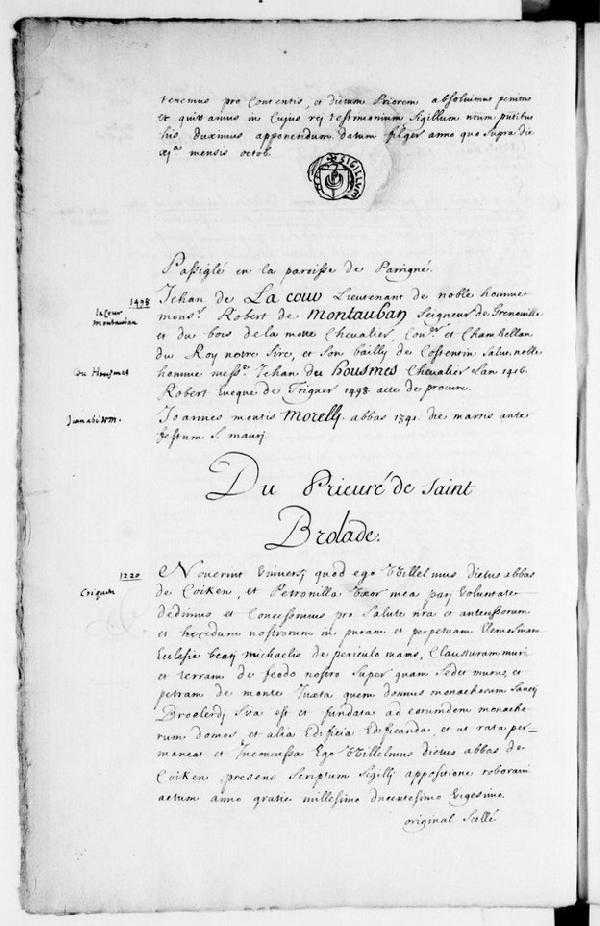 tenemus pro Contentis, et dictum Priorem absolvimus penitus
et quitamus in Cujus rej testimonium Sigillum nrum putibus
his duximus apponendum. datum filger anno quo Supra die
xjª mensis octob.
SIGILLUM
Passiglé en la paroisse de Parrigné.
1498
la Cour
montauban
Jehan de La cour Lieutenant de noble homme
monsr. Robert de montauban Seigneur de Grenonville
et du bois de la motte Chevalier, Conser. et Chambellan
du Roy notre Sire, et Son bailly de Costentin Salut noble
du Housmes
homme messre. Jehan du housmes Chevalier L'an 1416
Robert eveque de Triguer 1498 acte de procure.
Joannes mentis morelli. abbas 1341. die martis ante
festum S. maurj
Du Prieuré de Saint
Brolade.
1220
Noverint Universj quod ego Willelmus dictus abbas
Coiquen
de Coiken, et Petronilla Uxor mea parj Voluntate
dedimus et Concessimus pro Salute nra & antecessorum
et heredum nostrorum in puram et perpetuam Elemosinam
Ecclesie beatj michaelis de periculo maris, Clausturam murj
et terram de feodo nostro Super quam Sedet murus, et
petram de monte Juxta quem domus monachorum Sanctj
Broelardj Sita est et fundata ad eorumdem monacho-
rum domos et alia Edificia Edificanda, et ut rata per-
maneat et Inconcussa Ego Willelmus dictus abbas de
Coiken presens Scriptum Sigillj appositione roboravi
actum anno gratie millesimo ducentesimo Vigesimo.
original Scellé